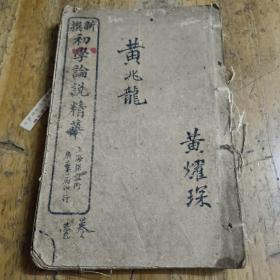 黃兆龍
黃燿琛
新撰
初學論說精華
上海
廣益書局印行
卷